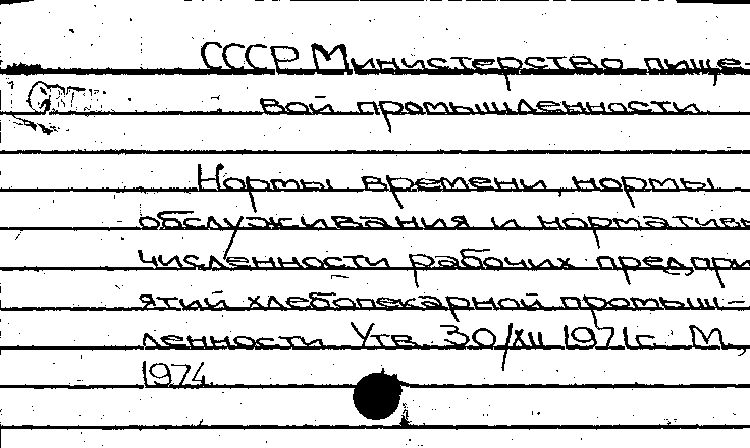 СССР Министерство пище-
вой промышленности
Нормы времени, нормы
обслуживания и нормативы
численности рабочих предпри
ятий хлебопекарной промыш-
ленности. Утв. 30/XII 1971г. М.,
1974.